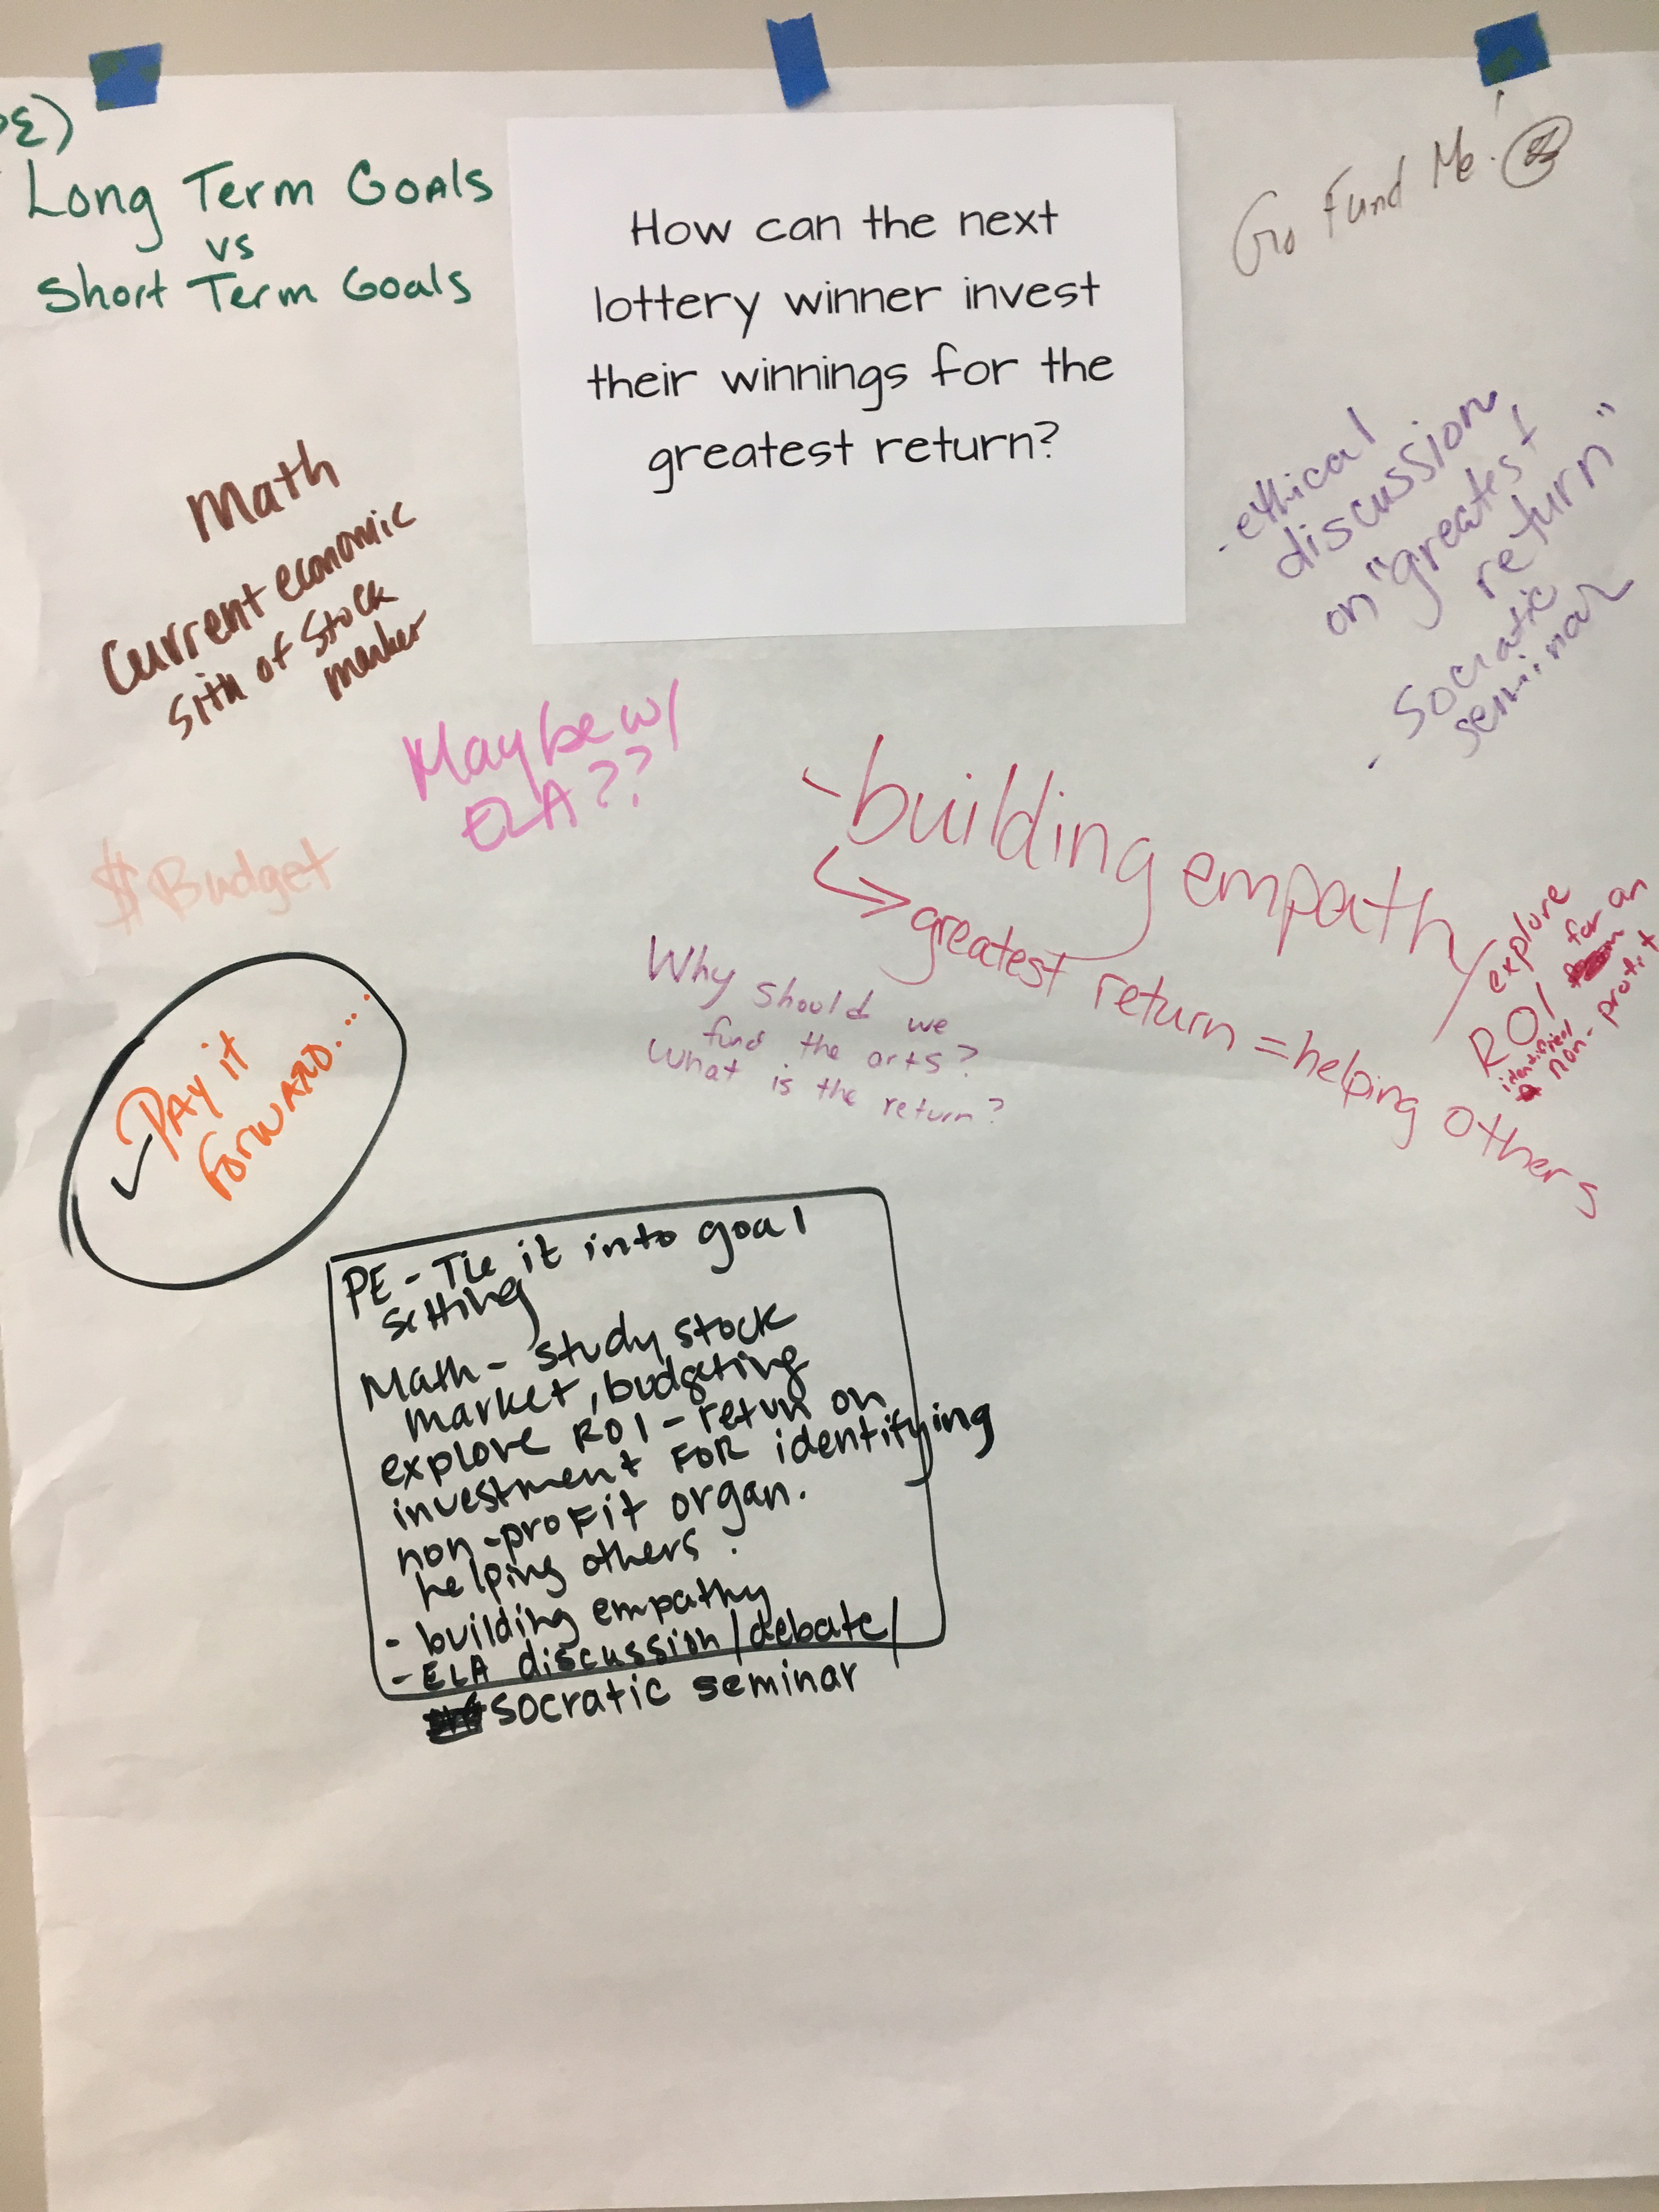 How can the next
lottery winner invest
their winnings for the
greatest return?
Long Term Goals
vs
Short Term Goals
Go Fund Me!
Math
Current economic
sitn of Stock
market
- ethical
discussion
on "greatest
return"
- Socratic
seminar
Maybe w/
ELA??
$ Budget
- building empathy
greatest return = helping others
explore
ROI for an
non-profit
Why should we
fund the arts?
What is the return?
Pay it
forward...
PE - Tie it into goal
setting
Math - study stock
market, budgeting
explore ROI - return on
investment FOR identifying
non-profit organ.
helping others.
- building empathy
- ELA discussion/debate/
socratic seminar